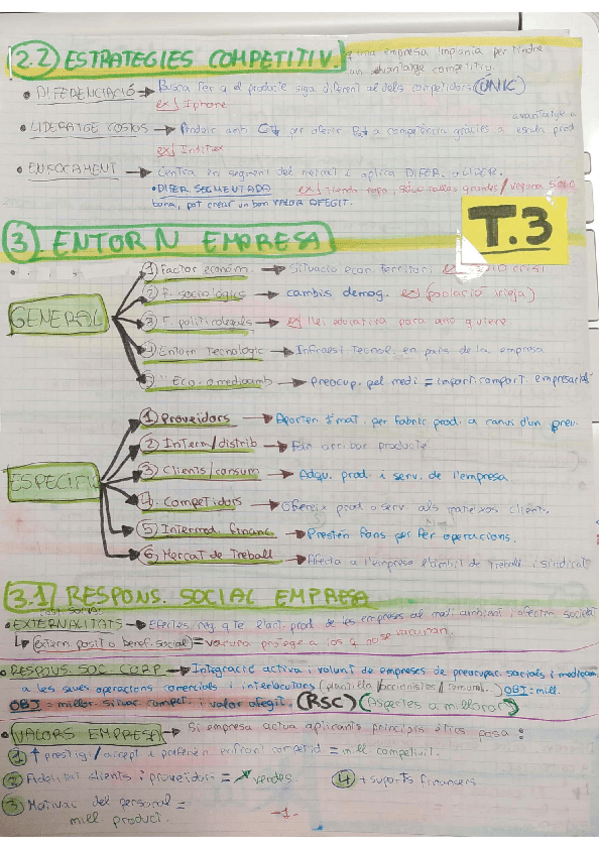 2.2 ESTRATEGIES COMPETITIV. q una empresa limpiania per tindre
un avantatge competitiu.
• DIFERENCIACIÓ → Busca fer q el producte siga diferent al dels competidors (ÚNIC)
ex/ Iphone
• LIDERATGE COSTOS → Produir amb C↓ per oferir P↓ a competència gràcies a escala prod
avantatge a
ex/ Inditex
• ENFOCAMENT → Centra in segment del mercat i aplica DIFER. o LIDER.
• DIFER SEGMENTADA ex/ tienda ropa, sólo tallas grandes/ vegana SÓLO
bona, pot crear un bon VALOR AFEGIT.
T.3
3. ENTORN EMPRESA
GENERAL
1) Factor econòm. → Situació econ. territori. ex crisi
2) F. sociològics → cambis demog. ex (població vieja)
3) F. politicolegals → ex/ lle. educativa para año quiere
4) Entorn Tecnològic → Infraest Tecnol. en país de la empresa
5) " Eco. o medioamb → Preocup. pel medi = import. comport. empresarial
ESPECÍFIC
1) Proveidors → Aporten mat. per fabric prod. a canvi d'un preu.
2) Interm/distrib → Fan arribar producte
3) Clients/consum → Adqu. prod. i serv. de l'empresa.
4. Competidors → prod o serv. als mateixos clients.
5) Intermed. financ. → Presten fons per fer operacions.
6) Mercat de Treball → Afecta a l'empresa l'àmbit de Treball i sindical
3.1 RESPONS. SOCIAL EMPRESA
• EXTERNALITATS → Efectes neg. q te l'act. prod de les empreses al medi ambient i afecten societat
↳ Extern posit o benef. social = vacuna protege a los q no se vacunan
• RESPONS. SOC CORP → Integració activa i volunt de empreses de preocupac. socials i medioam
a les seues operacions comercials i interlocutors (plantilla/accionistes/comunit..) OBJ = mill.
OBJ = millor. situac compet. i valor afegit. (RSC) (Aspectes a millorar)
• VALORS EMPRESA → Si empresa actua aplicants principis ètics passa:
1) ↑ prestigi/accept i preferen enfront competid = mill competivit.
2) Fidelitat clients i proveidors = ↗ vendes. 4) + suports financers
3) Motivac del personal =
mill. product.
-1-